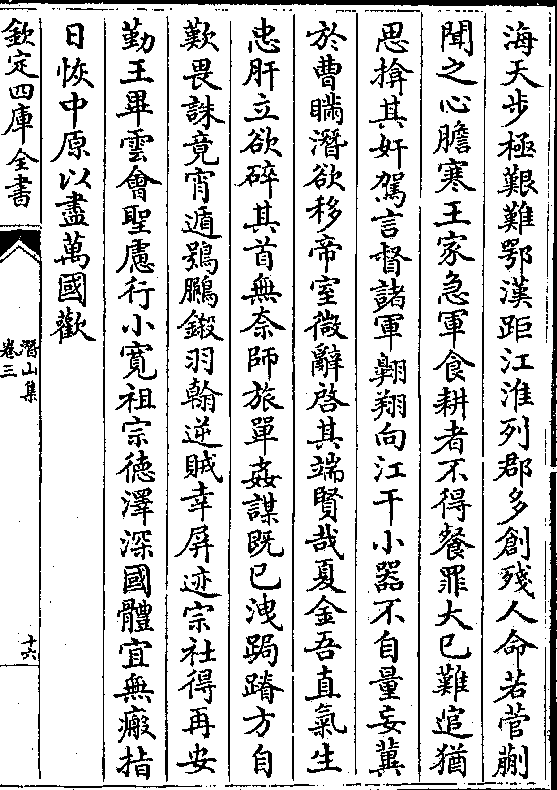 海天步極艱難鄂漢距江淮列郡多創殘人命若菅蒯
聞之心膽寒王家急軍食耕者不得餐罪大已難逭猶
思揜其奸駕言督諸軍翺翔向江干小器不自量妄冀
於曹瞞潛欲移帝室微辭啓其端賢哉夏金吾直氣生
忠肝立欲碎其首無奈師旅單姦謀既已洩跼蹐方自
歎畏誅竟宵遁鵶鵬鎩羽翰逆賊幸屏迹宗社得再安
勤王畢雲會聖慮行小寛祖宗德澤深國體宜無瘢指
日恢中原以盡萬國歡
欽定四庫全書
潛山集
卷三
十六